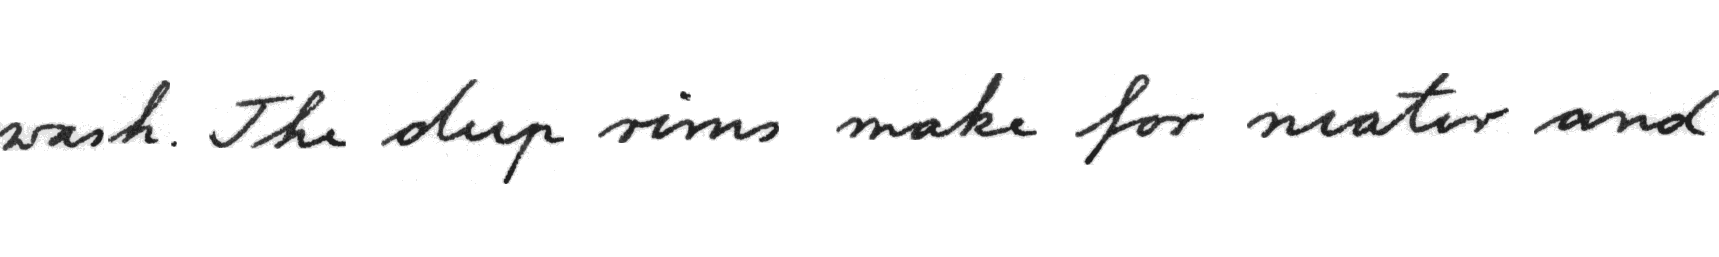 wash. The deep rims make for neater and